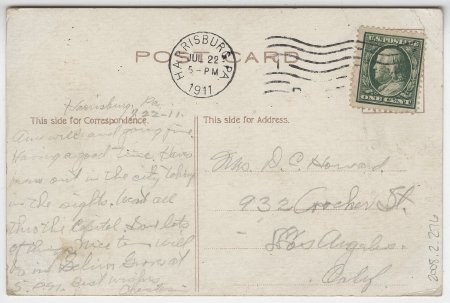 POST CARD
HARRISBURG, PA.
JUL 22
5-PM
1911
U.S. POSTAGE
ONE CENT
This side for Correspondence.
This side for Address.
Harrisburg, Pa.
7.22-11.
and going fine
Having a good time. Have
been out in the city taking
in the sights. Went all
thro the Capitol. Saw lots
of things. Nice to
at
5 P.M. Best wishes
Mrs. D. C. Howard
932 Crocker St.
Los Angeles.
Calif
2008.2.226